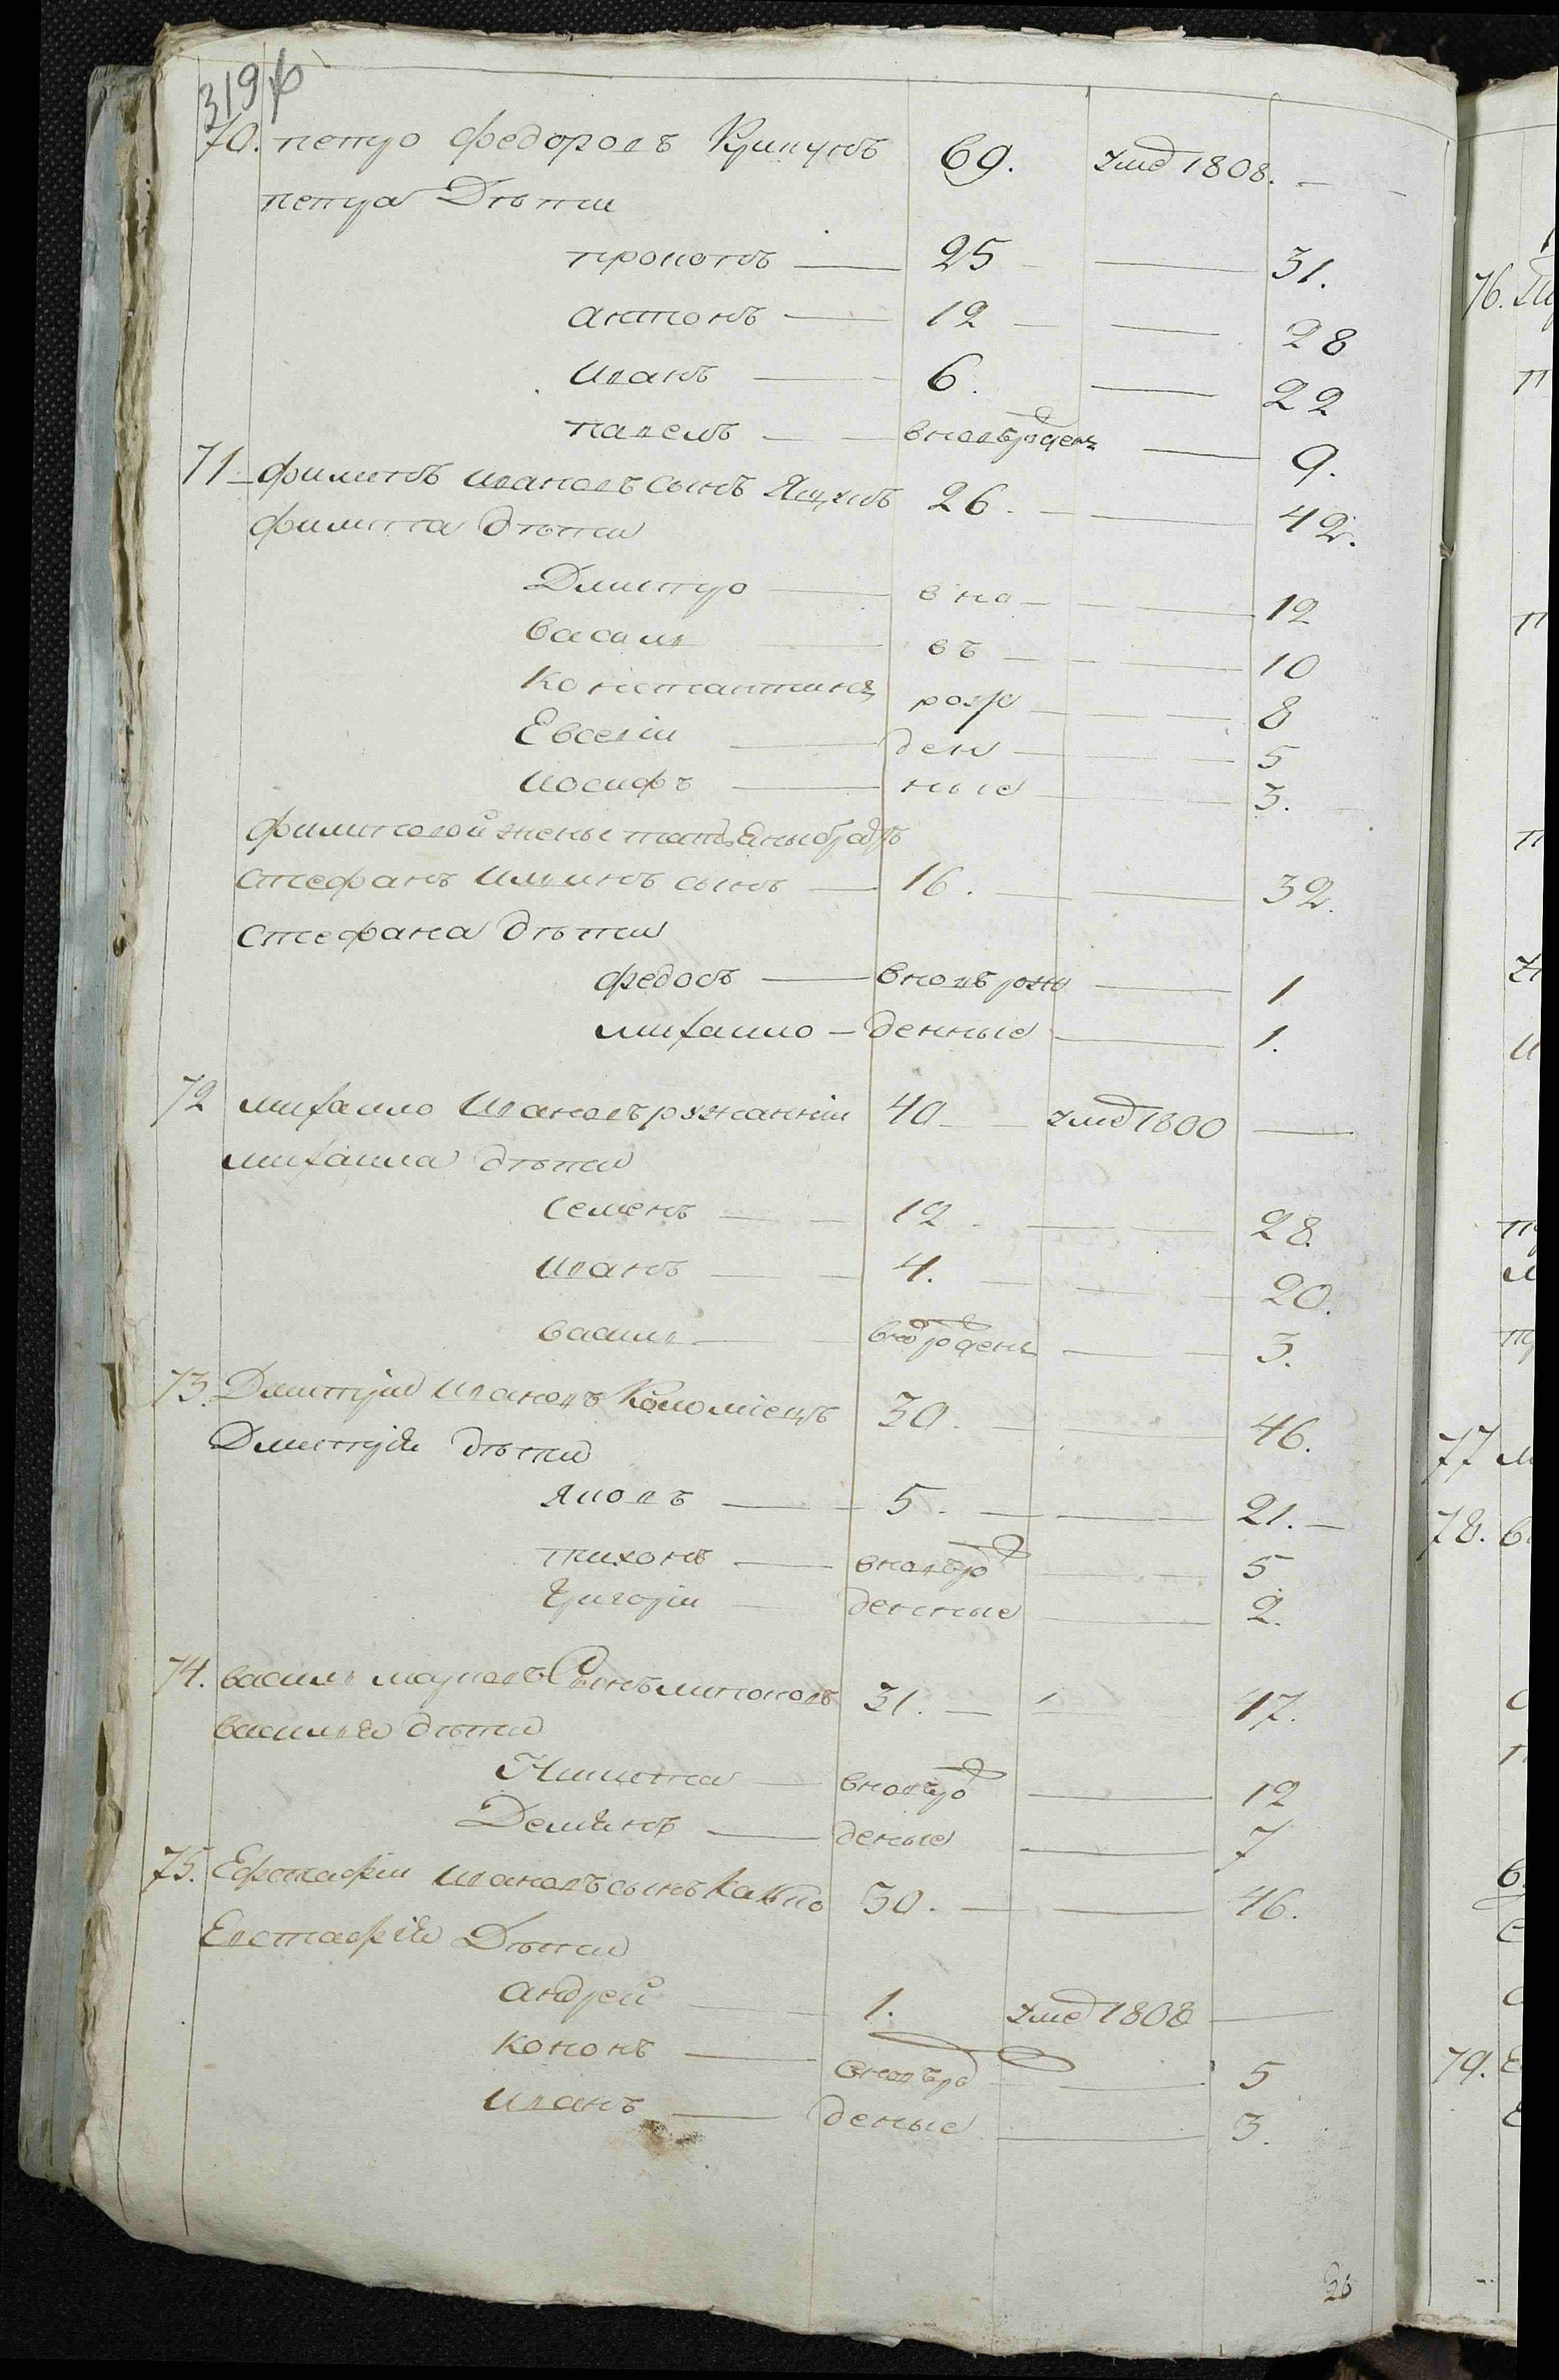 319
70. петро федоровъ 69. умд 1808. —
петра Дѣти
прокопъ — 25 — 31.
антонъ — 12 — 28
Иванъ — 6. — 22
павелъ — вновьрожден — 9.
71 филипъ ивановъ сынъ 26. — 42.
филипа дѣти
Дмитро — вно — 12
василь — въ — 10
Константинъ рожд — 8
Евсей — ден — 5
иосифъ — ные — 3.
филиповой жены братъ
стефанъ Ильинъ сынъ — 16. — 32.
стефана дѣти
федосъ — вновьрож — 1
михаило — денные — 1.
72 михаило Ивановъ ружанский 40 — умд 1800 —
михаила дѣти
семенъ — 12 — 28.
иванъ — 4. — 20.
василь — 3.
73. Дмитрий ивановъ Коломіецъ 30. — 46.
Дмитрія дѣти
Яковъ — 5. — 21. —
тихонъ — вновьрож — 5
григорій — денные — 2.
74. василь марковъ Сынъ 31. — 47.
василья дѣти
Никита — вновьрож — 12
Демянъ — деные — 7
75. Ефстафій ивановъ сынъ 30. — 46.
Евстафія Дѣти
андрей — 1. умд 1808 —
кононъ — вновьрож — 5
иванъ — деные — 3.
76.
77
78.
79.